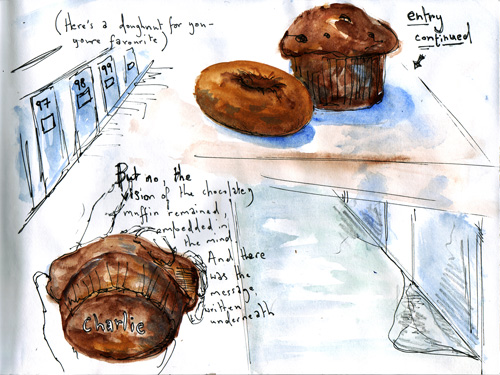 (Here's a doughnut for you-
youre favourite)
entry
continued
97
98
99
But no, the
vision of the chocolatey
muffin remained,
embedded in
the mind.
And there
was the
message
written
underneath
Charlie